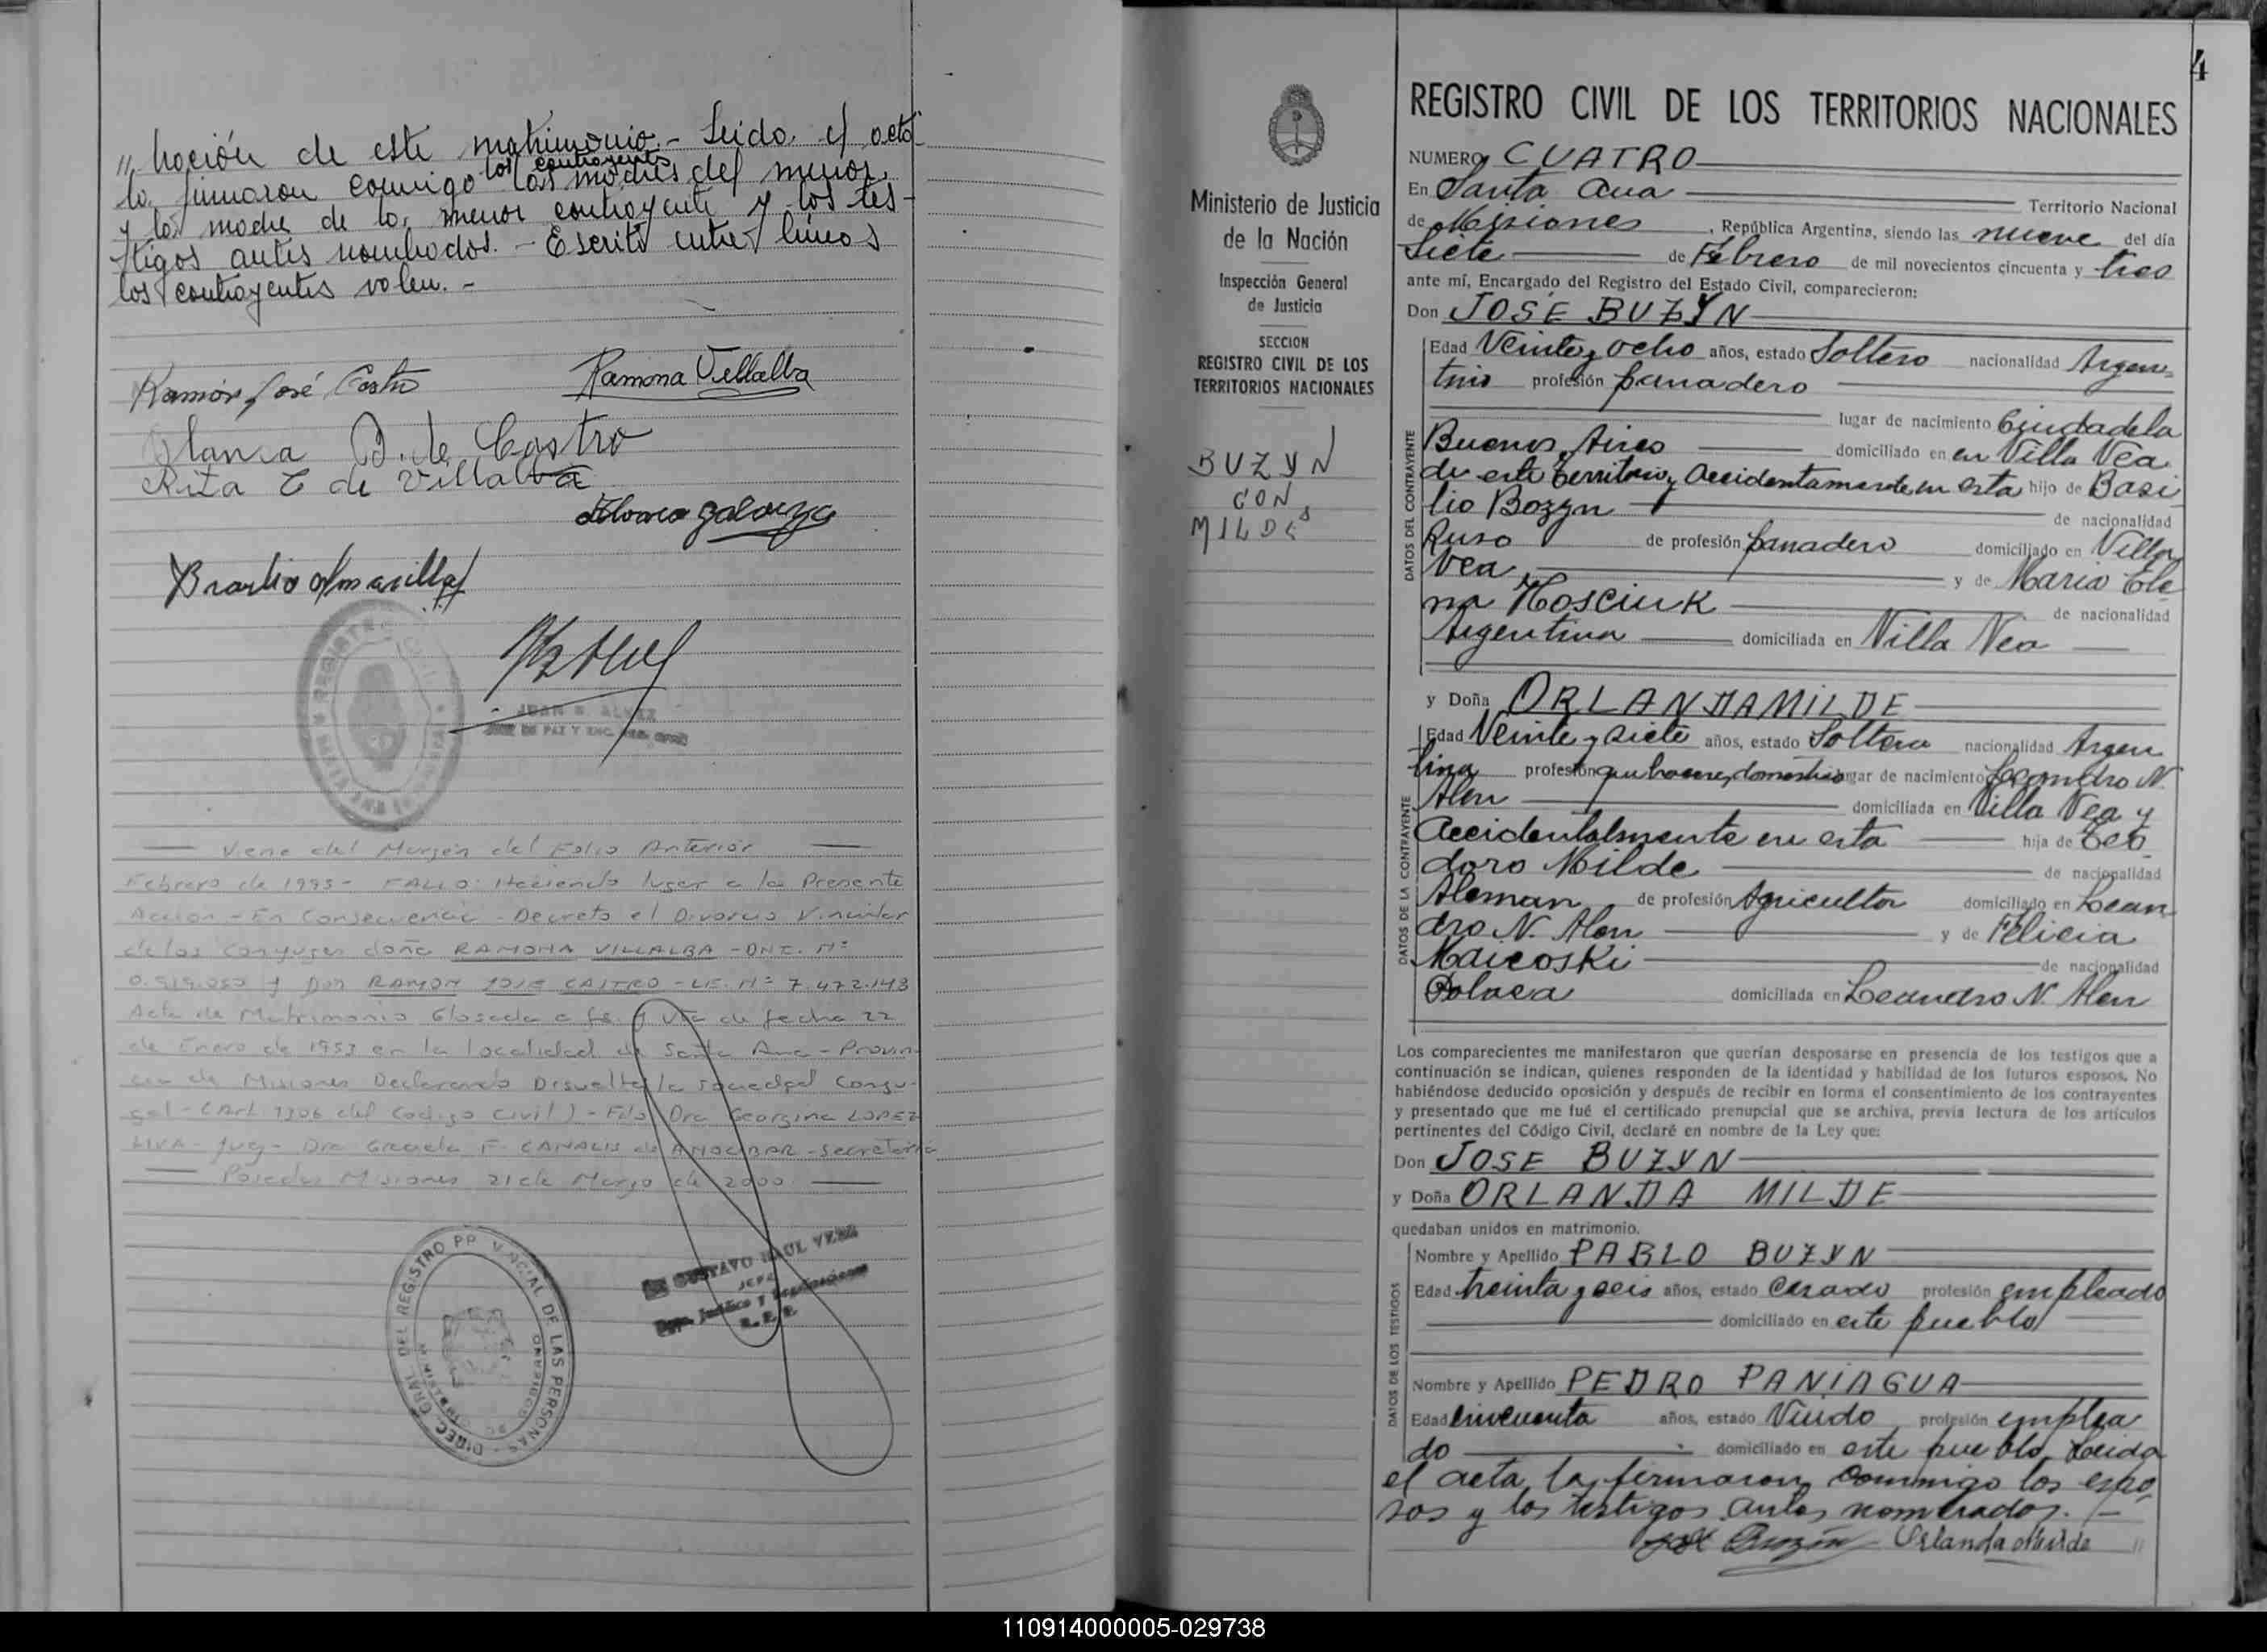 " bración de este matrimonio.- Leida el acta
la firmaron conmigo los contrayentes las madres del menor
y la madre de la menor contrayente y los tes-
tigos antes nombrados. - Escrito entre lineas
los contrayentes valen. -
Ramón José Castro
Ramona Villalba
Blanca D. de Castro
Rita E de Villalba
Braulio Amarilla
REGISTRO CIVIL
JUAN
ALVEZ
JUEZ DE PAZ Y ENC. REG. CIVIL
Viene del Margen del Folio Anterior
Febrero de 1993 - FALLO: Haciendo lugar a la Presente
Acción - En Consecuencia - Decreto el Divorcio Vincular
de los Conyuges doña RAMONA VILLALBA - DNI. Nº
y Don RAMON JOSE CASTRO - LE. Nº 7.472.143
Acta de Matrimonio Glosada a fs. 1 Vta de fecha 22
de Enero de 1953 en la localidad de Santa Ana - Provin-
cia de Misiones Declarando Disuelta la sociedad Conyu-
gal - (Art. 1306 del Codigo Civil) - Fdo Dra Georgina LOPEZ
LIVA - Juez - Dra Graciela F. CANALIS de AMOCBAR - Secretaria
Posadas Misiones 21 de Marzo de 2000
DIREC. GRAL. DEL REGISTRO PROVINCIAL DE LAS PERSONAS
GUSTAVO RAUL VERA
JEFE
4
Ministerio de Justicia
de la Nación
Inspección General
de Justicia
SECCION
REGISTRO CIVIL DE LOS
TERRITORIOS NACIONALES
BUZYN
CON
MILDE
REGISTRO CIVIL DE LOS TERRITORIOS NACIONALES
NUMERO CUATRO
En Santa Ana Territorio Nacional
de Misiones, República Argentina, siendo las nueve del día
siete de Febrero de mil novecientos cincuenta y tres
ante mí, Encargado del Registro del Estado Civil, comparecieron:
Don JOSÉ BUZYN
DATOS DEL CONTRAYENTE
Edad Veinte y ocho años, estado Soltero nacionalidad Argen-
tino profesión panadero
lugar de nacimiento Ciudadela
Buenos Aires domiciliado en en Villa Vea
de este territorio y Accidentalmente en esta hijo de Basi
lio Bozyn de nacionalidad
Ruso de profesión panadero domiciliado en Villa
Vea y de Maria Ele
na Kosciuk de nacionalidad
Argentina domiciliada en Villa Vea
y Doña ORLANDA MILDE
DATOS DE LA CONTRAYENTE
Edad Veinte y siete años, estado Soltera nacionalidad Argen
tina profesión quehacere, domestico lugar de nacimiento Leandro N.
Alen domiciliada en Villa Vea y
Accidentalmente en esta hija de Teo
doro Milde de nacionalidad
Aleman de profesión Agricultor domiciliado en Lean
dro N. Alen y de Felicia
Maicoski de nacionalidad
Polaca domiciliada en Leandro N. Alen
Los comparecientes me manifestaron que querían desposarse en presencia de los testigos que a
continuación se indican, quienes responden de la identidad y habilidad de los futuros esposos. No
habiéndose deducido oposición y después de recibir en forma el consentimiento de los contrayentes
y presentado que me fué el certificado prenupcial que se archiva, previa lectura de los artículos
pertinentes del Código Civil, declaré en nombre de la Ley que:
Don JOSE BUZYN
y Doña ORLANDA MILDE
quedaban unidos en matrimonio.
DATOS DE LOS TESTIGOS
Nombre y Apellido PABLO BUZYN
Edad treinta y seis años, estado Casado profesión empleado
domiciliado en este pueblo
Nombre y Apellido PEDRO PANIAGUA
Edad Cincuenta años, estado Viudo profesión emplea
do domiciliado en este pueblo Leida
el acta la firmaron conmigo los espo-
sos y los testigos antes nombrados. -
José Buzyn Orlanda Milde "
110914000005-029738